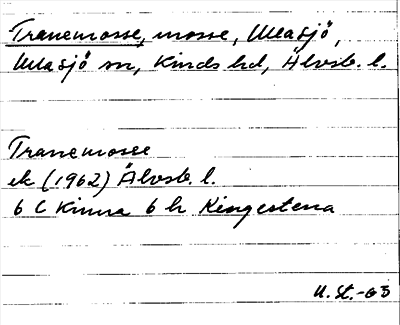 Tranemosse, mosse, Ullasjö,
Ullasjö sn, Kinds hd, Älvsb. l.
Tranemosse
ek (1962) Älvsb. l.
6 C Kinna 6 h Ringestena
U. St. -63